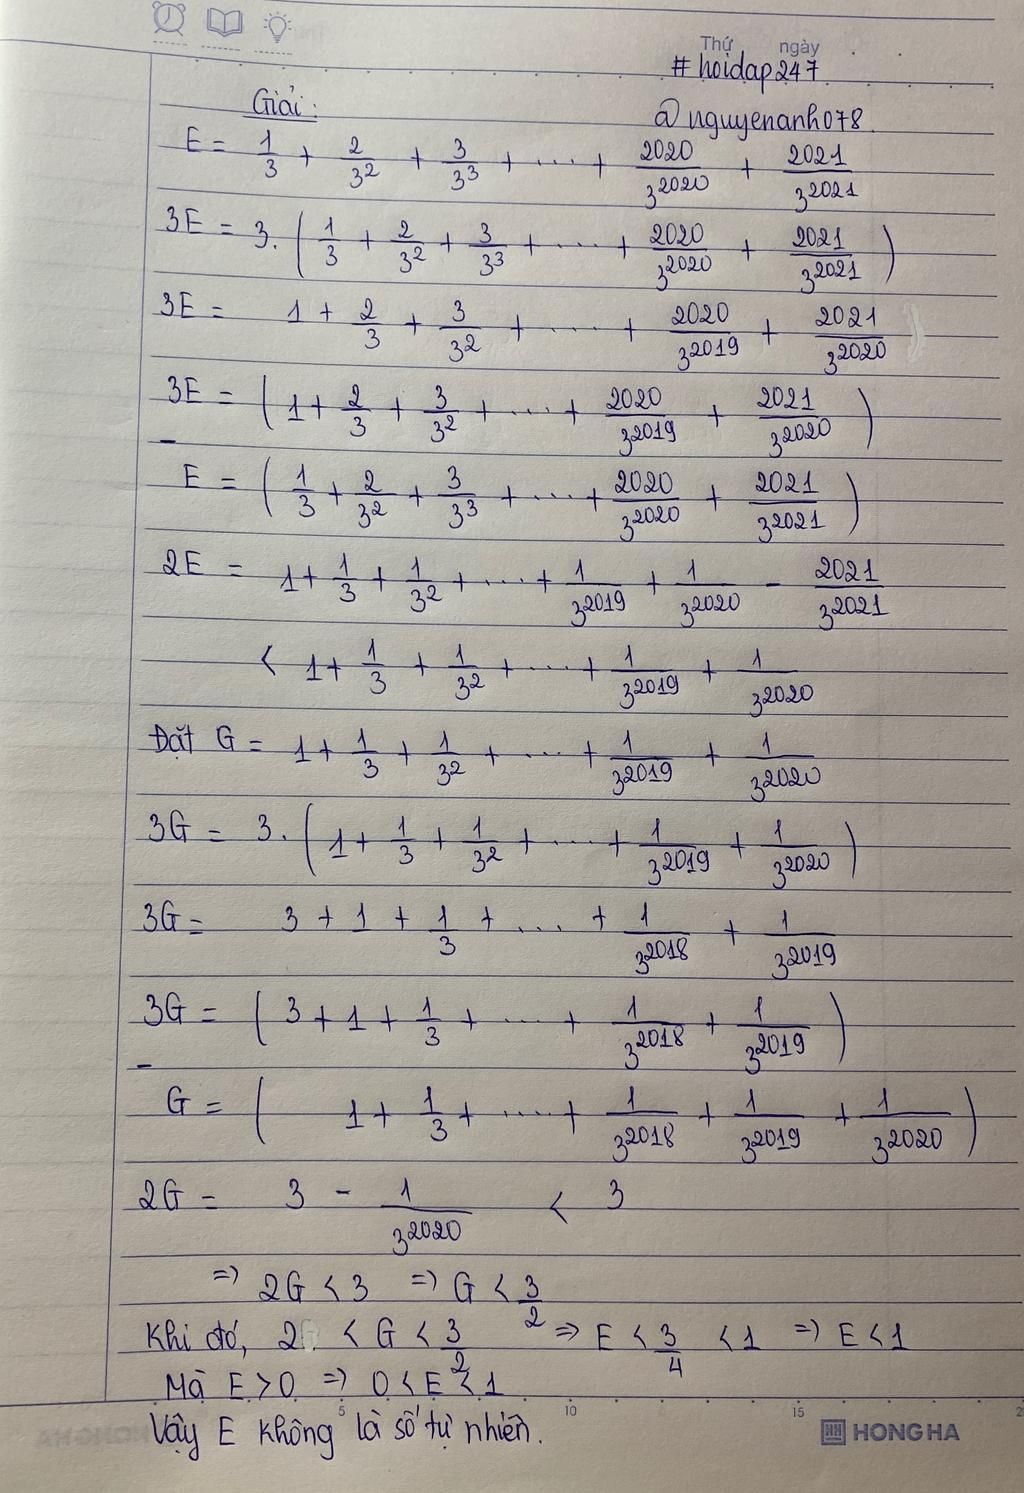 Thứ ngày
#hoidap247
Giải:
@nguyenanh078
E = 1/3 + 2/3^2 + 3/3^3 + .... + 2020/3^2020 + 2021/3^2021
3E = 3. (1/3 + 2/3^2 + 3/3^3 + .... + 2020/3^2020 + 2021/3^2021)
3E = 1 + 2/3 + 3/3^2 + .... + 2020/3^2019 + 2021/3^2020
3E = (1 + 2/3 + 3/3^2 + .... + 2020/3^2019 + 2021/3^2020)
-
E = (1/3 + 2/3^2 + 3/3^3 + .... + 2020/3^2020 + 2021/3^2021)
2E = 1 + 1/3 + 1/3^2 + .... + 1/3^2019 + 1/3^2020 - 2021/3^2021
< 1 + 1/3 + 1/3^2 + .... + 1/3^2019 + 1/3^2020
Đặt G = 1 + 1/3 + 1/3^2 + .... + 1/3^2019 + 1/3^2020
3G = 3. (1 + 1/3 + 1/3^2 + .... + 1/3^2019 + 1/3^2020)
3G = 3 + 1 + 1/3 + .... + 1/3^2018 + 1/3^2019
3G = (3 + 1 + 1/3 + .... + 1/3^2018 + 1/3^2019)
-
G = (1 + 1/3 + .... + 1/3^2018 + 1/3^2019 + 1/3^2020)
2G = 3 - 1/3^2020 < 3
=> 2G < 3 => G < 3/2
Khi đó, 2 < G < 3/2 => E < 3/4 < 1 => E < 1
Mà E > 0 => 0 < E < 1
Vậy E không là số tự nhiên.
5 10 15 2
HONG HA